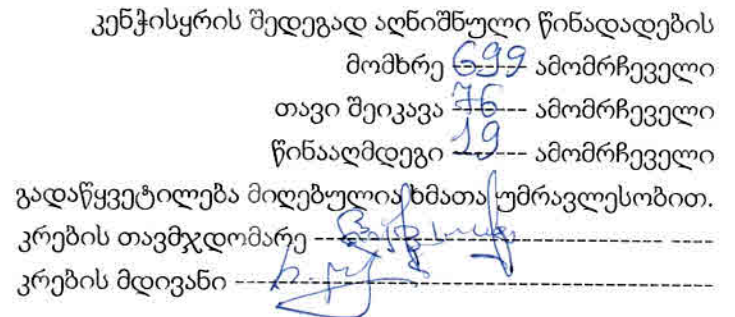 კენჭისყრის შედეგად აღნიშნული წინადადების
მომხრე 699 ამომრჩეველი
თავი შეიკავა 76 ამომრჩეველი
წინააღმდეგი 19 ამომრჩეველი
გადაწყვეტილება მიღებულია ხმათა უმრავლესობით.
კრების თავმჯდომარე
კრების მდივანი